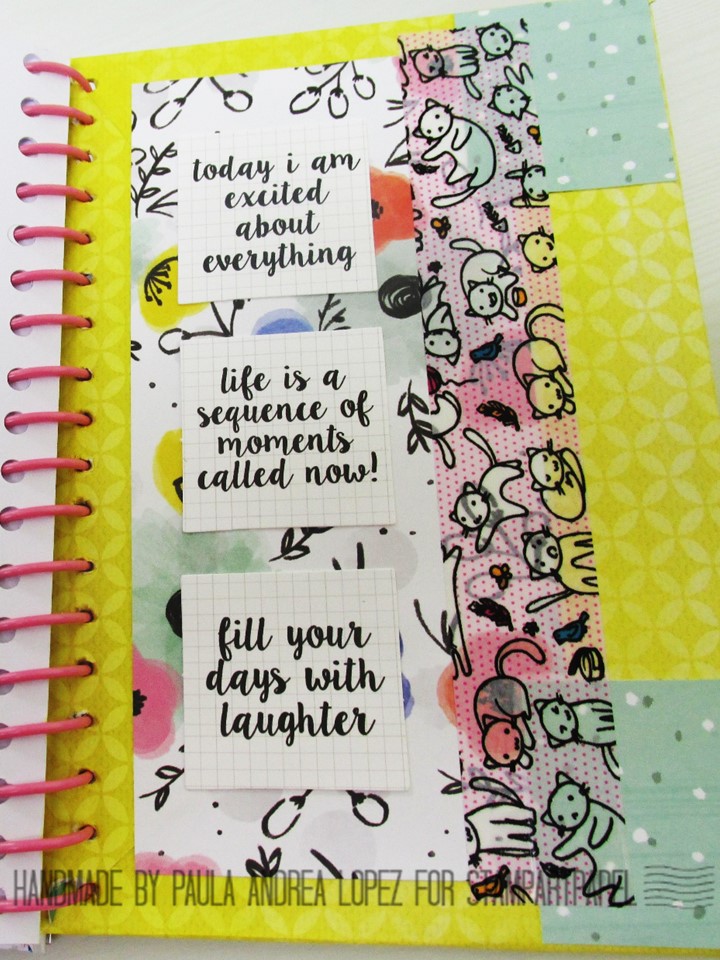 today i am
excited
about
everything
life is a
sequence of
moments
called now!
fill your
days with
laughter
HANDMADE BY PAULA ANDREA LOPEZ FOR STAMPARTPAPEL